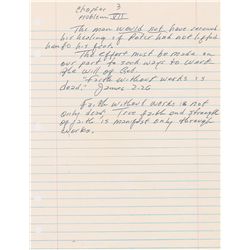 Chapter 3
Problem VII
The man would not have received
his healing if Peter had not lifted
him to his feet.
The effort must be made on
our part to seek ways to work
the will of God.
"Faith without works is
dead," James 2:26
Faith without works is not
only dead, True faith and strength
of faith is manifest only through
works.